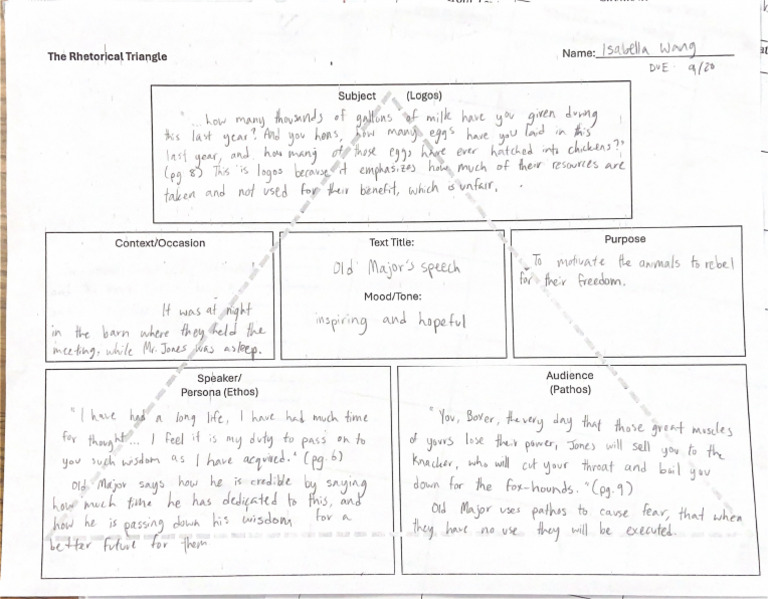 The Rhetorical Triangle
Name: Isabella Wang
DUE 9/20
Subject (Logos)
"...how many thousands of gallons of milk have you given during
this last year? And you hens, how many eggs have you laid in this
last year, and how many of those eggs have ever hatched into chickens?"
(pg 8) This is logos because it emphasizes how much of their resources are
taken and not used for their benefit, which is unfair.
Context/Occasion
It was at night
in the barn where they held the
meeting, while Mr. Jones was asleep.
Text Title:
Old Major's speech
Mood/Tone:
inspiring and hopeful
Purpose
To motivate the animals to rebel
for their freedom.
Speaker/
Persona (Ethos)
"I have had a long life, I have had much time
for thought... I feel it is my duty to pass on to
you such wisdom as I have acquired." (pg.6)
Old Major says how he is credible by saying
how much time he has dedicated to this, and
how he is passing down his wisdom for a
better future for them
Audience
(Pathos)
"You, Boxer, the very day that those great muscles
of yours lose their power, Jones will sell you to the
knacker, who will cut your throat and boil you
down for the fox-hounds." (pg.9)
Old Major uses pathos to cause fear, that when
they have no use they will be executed.